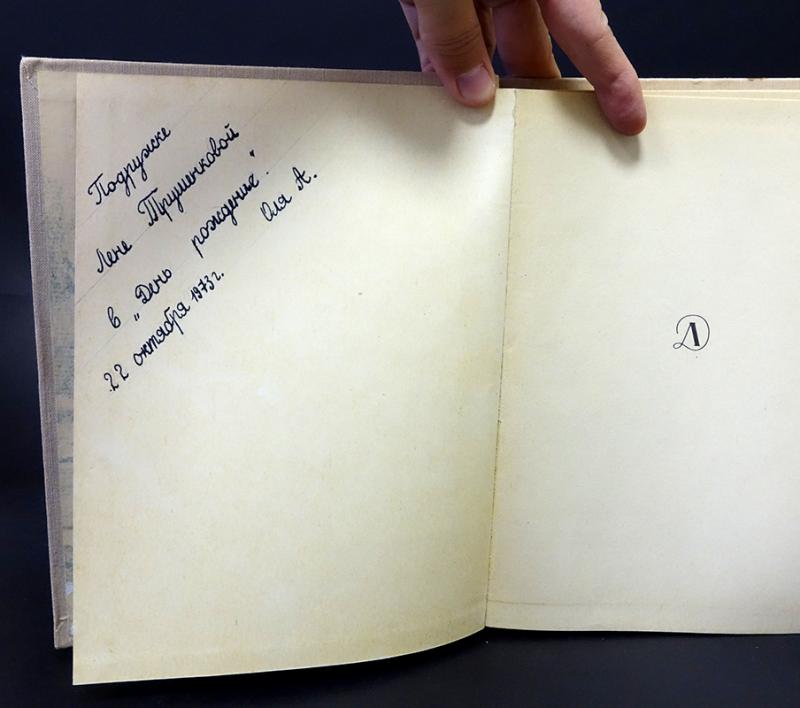 Подружке
Лене Трушенковой
в „День рожденья".
Оля А.
22 октября 1973 г.
Д